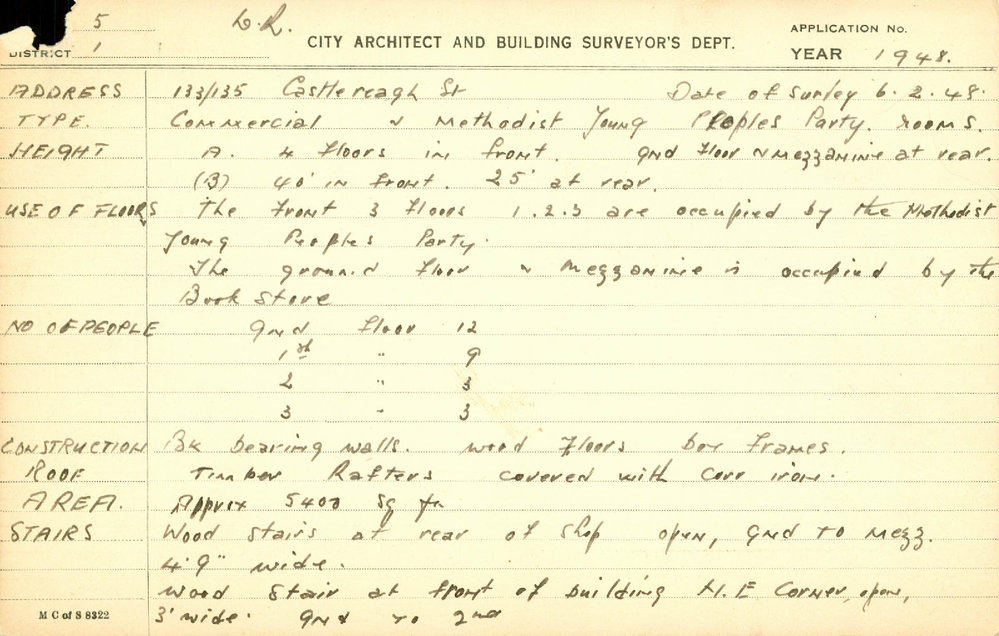 5 L.R. APPLICATION No.
DISTRICT 1 CITY ARCHITECT AND BUILDING SURVEYOR'S DEPT. YEAR 1948.
ADDRESS 133/135 Castlereagh St Date of Survey 6.2.48.
TYPE. Commercial & Methodist Young Peoples Party. rooms.
HEIGHT A. 4 floors in front. gnd floor & mezzanine at rear.
(B) 40' in front. 25' at rear.
USE OF FLOORS The front 3 floors 1.2.3 are occupied by the Methodist
Young Peoples Party.
The ground floor & mezzanine is occupied by the
Book Store
NO OF PEOPLE gnd floor 12
1st " 9
2 " 3
3 " 3
CONSTRUCTION Bk bearing walls. wood floors box frames.
ROOF Timber Rafters covered with Corr iron.
AREA. Approx 5400 sq ft.
STAIRS Wood stairs at rear of shop open, gnd to mezz.
4'9" wide.
wood stair at front of building N.E Corner, open,
M C of S 8322 3' wide. gnd to 2nd